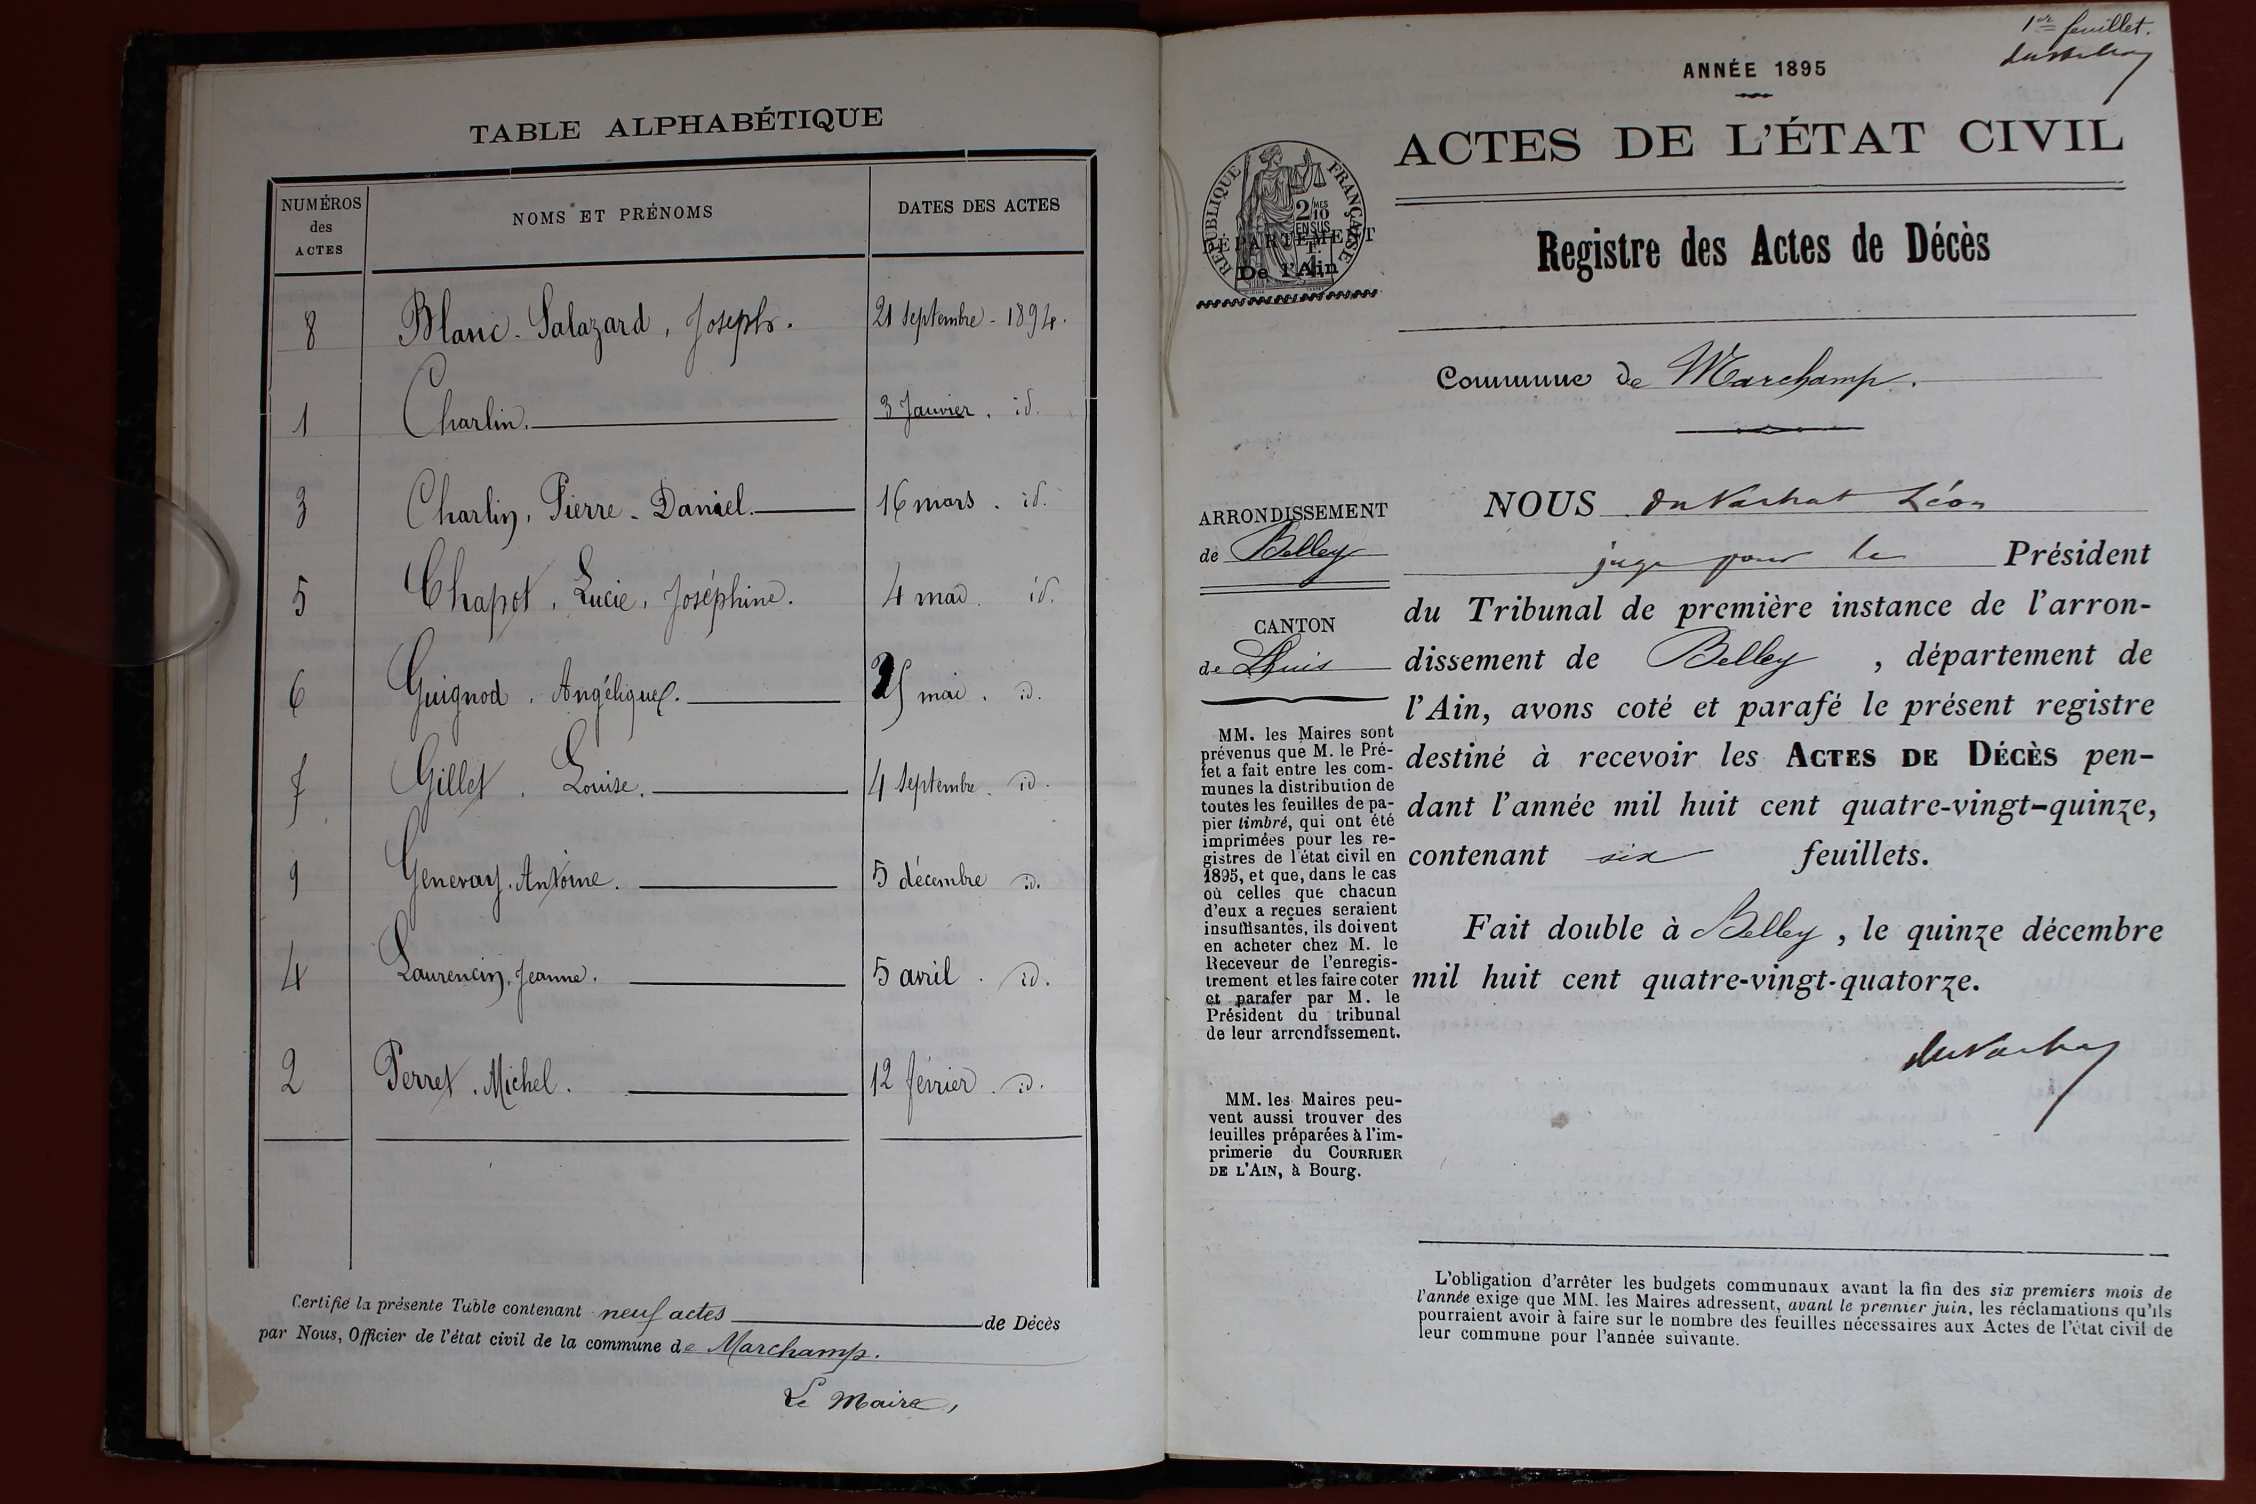 TABLE ALPHABÉTIQUE
NUMÉROS des ACTES
NOMS ET PRÉNOMS
DATES DES ACTES
8 Blanc-Salazard, Joseph. 21 septembre - 1894.
1 Charlin. 3 Janvier. id.
3 Charlin, Pierre-Daniel. 16 mars. id.
5 Chapot, Lucie, Joséphine. 4 mai. id.
6 Guignod, Angélique. 25 mai. id.
7 Gillet, Louise. 4 septembre. id.
9 Genevay, Antoine. 5 décembre id.
4 Laurencin, Jeanne. 5 avril. id.
2 Perret, Michel. 12 février. id.
Certifié la présente Table contenant neuf actes de Décès
par Nous, Officier de l'état civil de la commune de Marchamp.
Le Maire,
1er feuillet.
ANNÉE 1895
ACTES DE L'ÉTAT CIVIL
RÉPUBLIQUE FRANÇAISE
2/10 MES
EN SUS
DÉPARTEMENT
De l'Ain
Registre des Actes de Décès
Commune de Marchamp.
ARRONDISSEMENT
de Belley
CANTON
de Lhuis
MM. les Maires sont
prévenus que M. le Pré-
fet a fait entre les com-
munes la distribution de
toutes les feuilles de pa-
pier timbré, qui ont été
imprimées pour les re-
gistres de l'état civil en
1895, et que, dans le cas
où celles que chacun
d'eux a reçues seraient
insuffisantes, ils doivent
en acheter chez M. le
Receveur de l'enregis-
trement et les faire coter
et parafer par M. le
Président du tribunal
de leur arrondissement.
MM. les Maires peu-
vent aussi trouver des
feuilles préparées à l'im-
primerie du COURRIER
DE L'AIN, à Bourg.
NOUS Léon
juge pour le Président
du Tribunal de première instance de l'arron-
dissement de Belley, département de
l'Ain, avons coté et parafé le présent registre
destiné à recevoir les ACTES DE DÉCÈS pen-
dant l'année mil huit cent quatre-vingt-quinze,
contenant six feuillets.
Fait double à Belley, le quinze décembre
mil huit cent quatre-vingt-quatorze.
L'obligation d'arrêter les budgets communaux avant la fin des six premiers mois de
l'année exige que MM. les Maires adressent, avant le premier juin, les réclamations qu'ils
pourraient avoir à faire sur le nombre des feuilles nécessaires aux Actes de l'état civil de
leur commune pour l'année suivante.